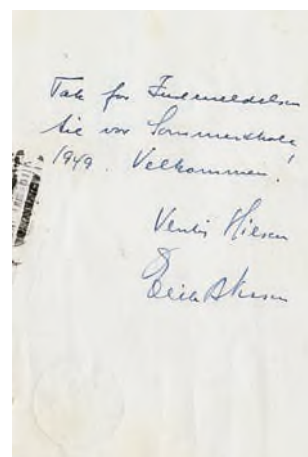 Tak for Indmeldelsen
til vor Sommerskole
1949. Velkommen!
Venlig Hilsen